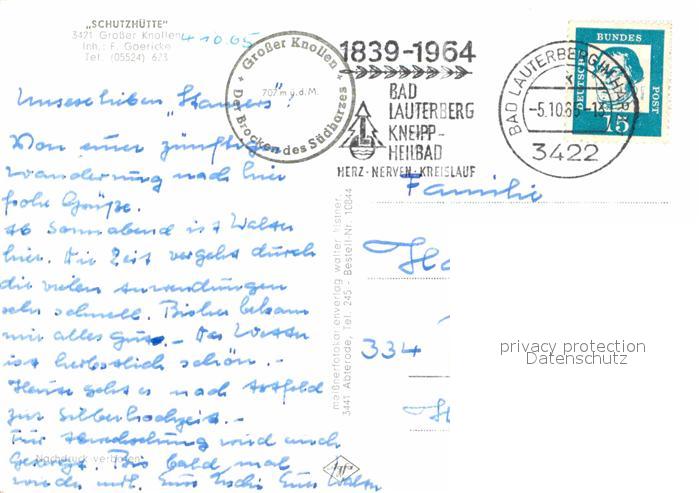 „SCHUTZHÜTTE"
3421 Großer Knollen
Inh.: F. Goericke
Tel. (05524) 623
4.10.65
Großer Knollen
707 m ü.d.M.
Der Brocken des Südharzes
1839-1964
BAD
LAUTERBERG
KNEIPP-
HEILBAD
HERZ·NERVEN·KREISLAUF
BAD LAUTERBERG IM HARZ
-5.10.65-
3422
DEUTSCHE BUNDES POST
15
Unsere lieben
Von einer zünftigen
Wanderung nach hier
frohe Grüße.
Ab Sonnabend ist Walter
hier. Die Zeit vergeht durch
die vielen Anwendungen
sehr schnell. Bisher bekam
mir alles gut. – Das Wetter
ist herbstlich schön. –
Heute geht es nach
zur Silberhochzeit. –
Für Abwechslung wird auch
gesorgt. Bis bald mal
wieder mit. Eure Eure Walter
Familie
Ha
334
H
meißnerfotokartenverlag walter
3441 Abterode, Tel. 245 · Bestell-Nr. 10844
Nachdruck verboten
Agfa
privacy protection
Datenschutz